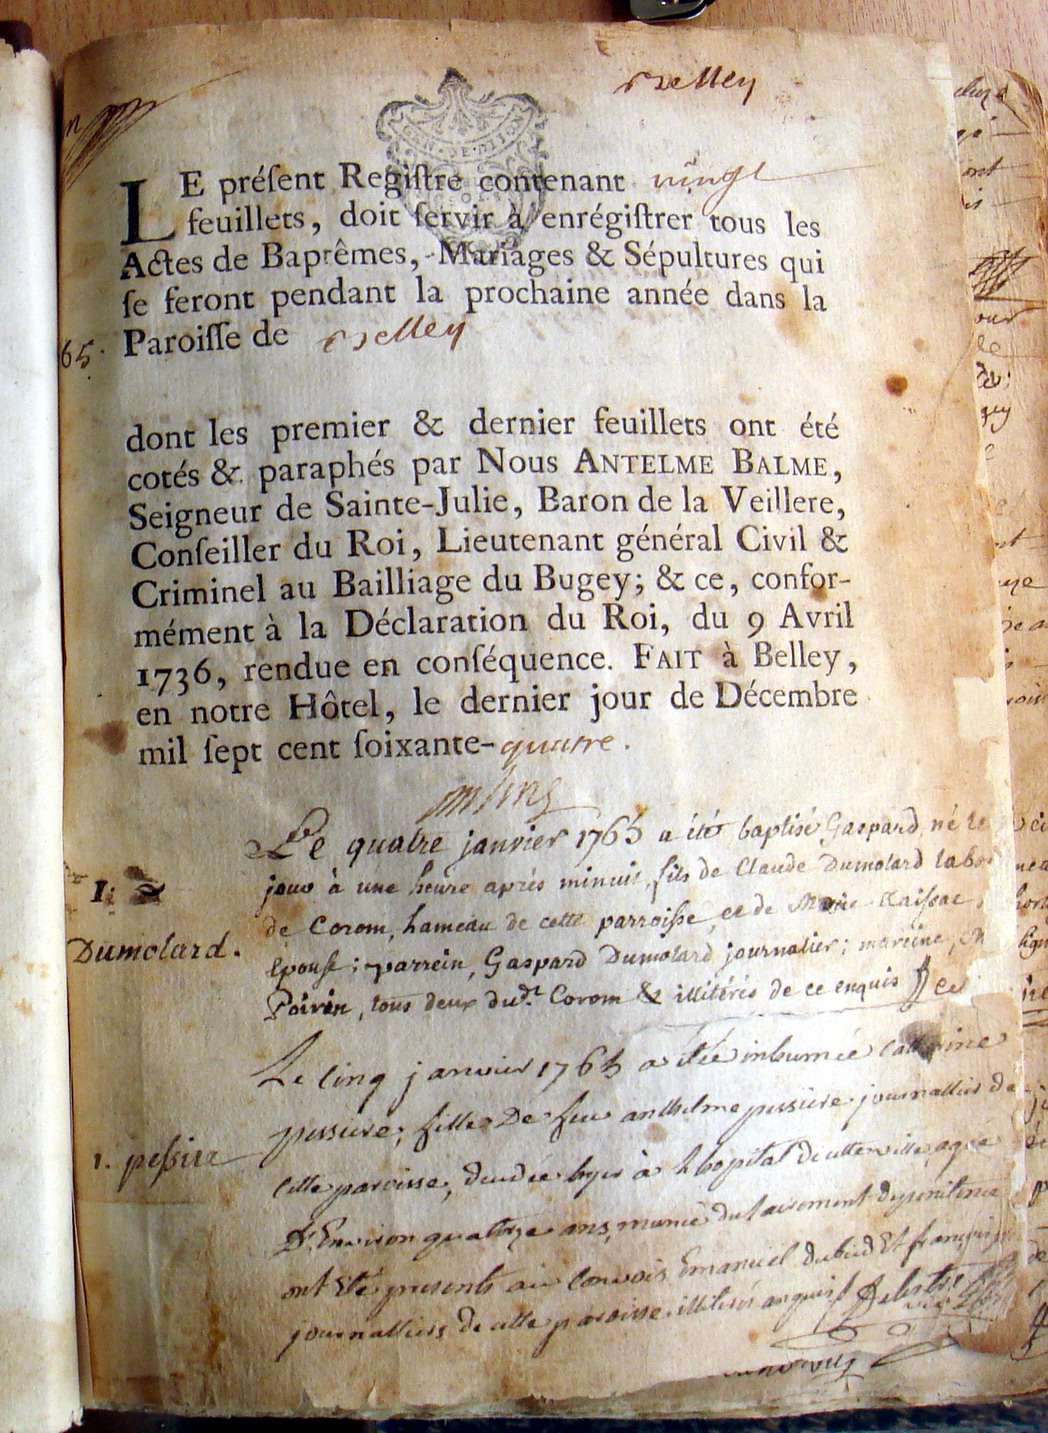 Belley
GEN·DE·DIJON
LE préſent Regiſtre contenant vingt
feuillets, doit ſervir à enrégiſtrer tous les
Actes de Baptêmes, Mariages & Sépultures qui
ſe feront pendant la prochaine année dans la
Paroiſſe de Belley
65.
dont les premier & dernier feuillets ont été
cotés & paraphés par Nous ANTELME BALME,
Seigneur de Sainte-Julie, Baron de la Veillere,
Conſeiller du Roi, Lieutenant général Civil &
Criminel au Bailliage du Bugey; & ce, confor-
mément à la Déclaration du Roi, du 9 Avril
1736, rendue en conſéquence. FAIT à Belley,
en notre Hôtel, le dernier jour de Décembre
mil ſept cent ſoixante-quatre.
Le quatre janvier 1765 a été baptisé Gaspard, né le
jour à une heure aprés minuit, fils de Claude Dumolard
1.
de Corom, hameau de cette parroiſse, et de
Dumolard.
Epouse; parrein, Gaspard Dumolard journalier; mareine,
Poirin, tous deux dud.t Corom & illitérés de ce enquis
Le cinq janvier 1765 a été inhumée Catherine
pessiere, fille De feu anthelme pessiere journallier de
1. peſsiere
cette paroisse, decedée hyer à l'hopital de cette ville, agée
D'Environ quattorze ans, munie du sacrement de penitence
ont Eté presents au convois Emanuel dubied Et françois
journalliers de cette paroisse illiterés enquis